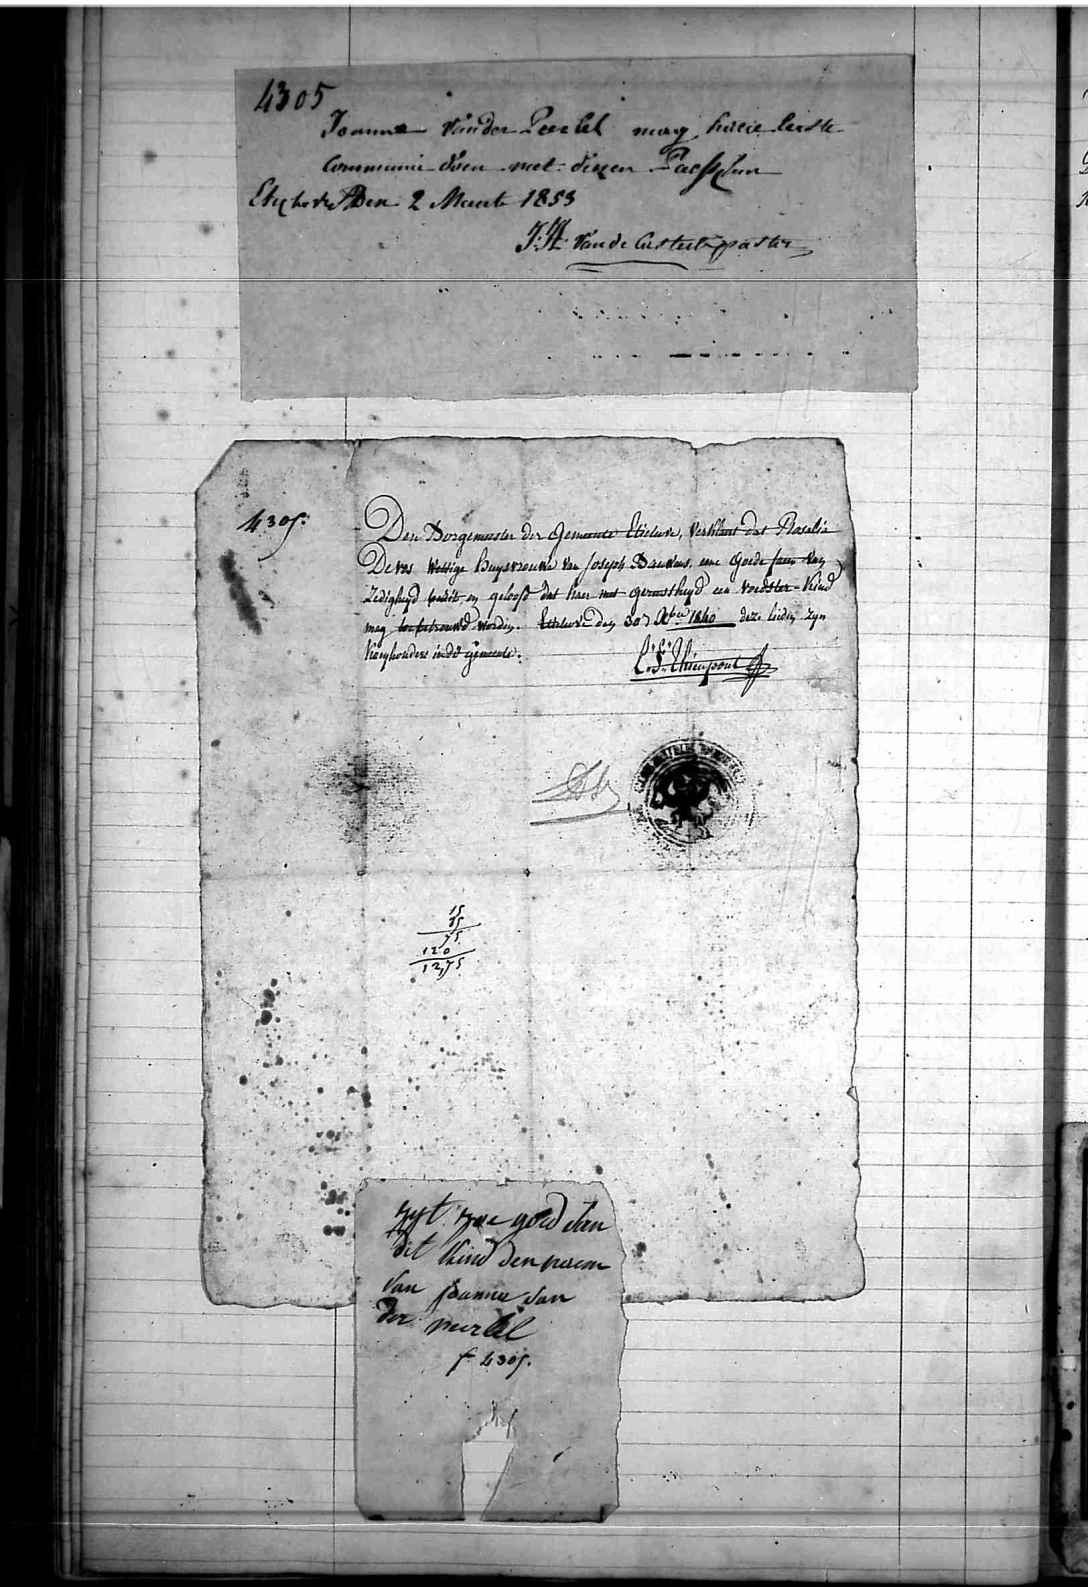 4305
Joanna Vander Peerbel mag haere eerste
Communie doen met dezen Paesschen
Etichove Den 2 Meert 1853
Van de Casteele pastor
4305.
Den Borgemeester der Gemeente Etichove, verklaert dat Rosalia
Devos Wettige huysvrouwe van Joseph Bauwens, eene Goede faem van
Zedigheyd bezit en gelooft dat haer met gerustheyd een voedster-Kind
mag toebetrouwd worden. Etichove den 30 Xber 1840 deze lieden zyn
Koeyhouders in dé gemeente.
L. Thienpont
15
85
75
120
12,75
zyt zoo goed van
dit kind den persoon
van joanna van
der meerbel
f 4305.